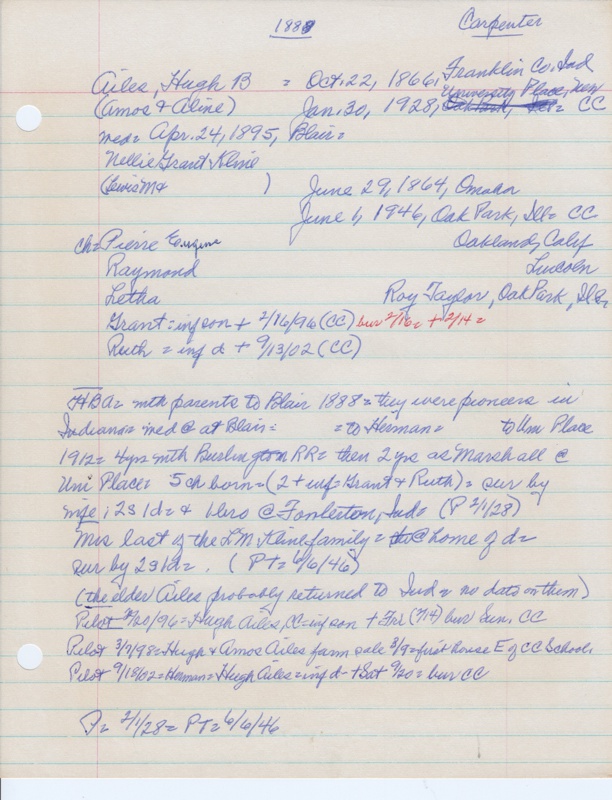 1888 Carpenter
Ailes, Hugh B = Oct. 22, 1866, Franklin Co. Ind
(Amos & Aline) Jan. 30, 1928, University Place, Neb = CC
med = Apr. 24, 1895, Blair =
Nellie Grant Kline
(Lewis M & ) June 29, 1864, Omaha
June 1, 1946, Oak Park, Ill = CC
ch = Pierre Eugene Oakland, Calif
Raymond Lincoln
Letha Roy Taylor, Oak Park, Ill
Grant = inf son + 2/16/96 (CC) bur 2/16 = + 2/14 =
Ruth = inf d + 9/13/02 (CC)
HBA = with parents to Blair 1888 = they were pioneers in
Indiana = med @ at Blair = = to Herman = to Uni Place
1912 = 4 yrs with Burlington RR = then 2 yrs as Marshall @
Uni Place = 5 ch born = (2 + inf = Grant & Ruth) = sur by
wife; 2s 1d = & 1 bro @ Ind = (P 2/1/28)
Mrs last of the L M Kline family = @ home of d =
sur by 2s 1d = . (PT = 6/6/46)
(the elder Ailes probably returned to Ind = no data on them)
Pilot 2/20/96 = Hugh Ailes, CC = inf son + Fri (2/14) bur Sun. CC
Pilot 3/7/98 = Hugh & Amos Ailes farm sale 3/9 = first house E of CC School
Pilot 9/18/02 = Herman = Hugh Ailes = inf d + Sat 9/20 = bur CC
P = 2/1/28 = PT = 6/6/46